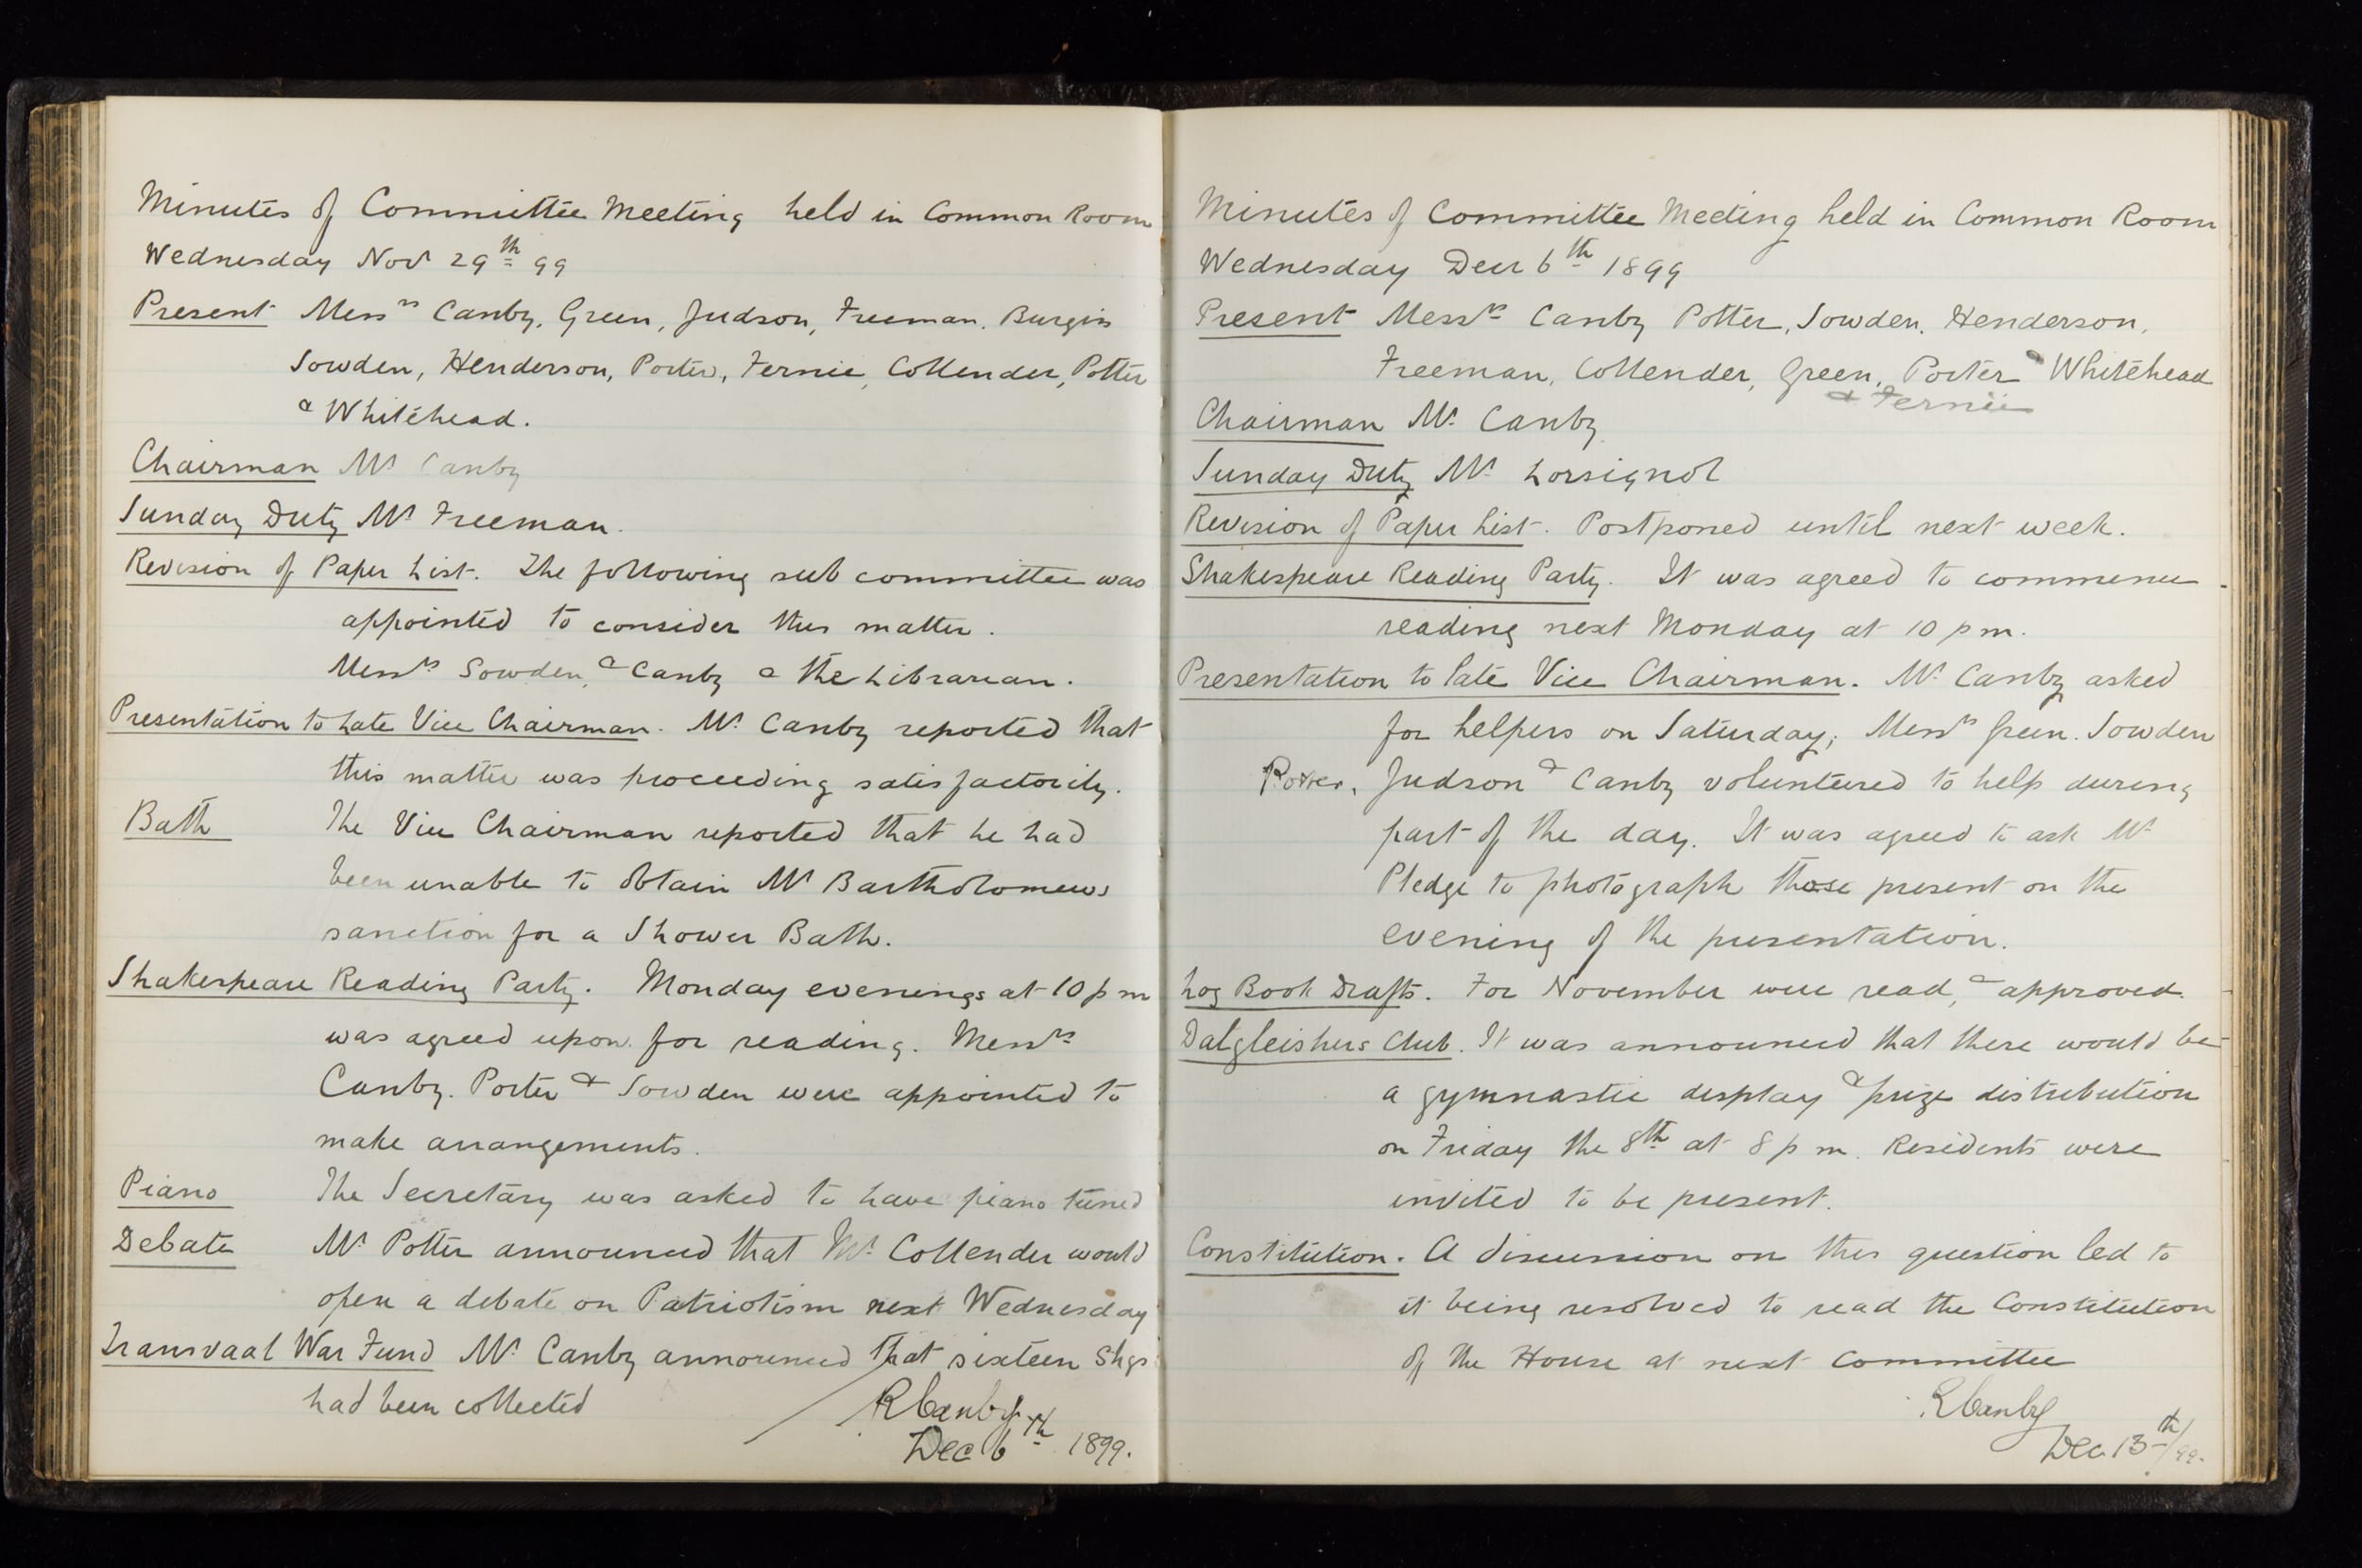 Minutes of Committee Meeting held in Common Room
Wednesday Nov 29th 99
Present Messrs Canby, Green, Judson, Freeman, Burgin
Sowden, Henderson, Porter, Fernie, Collender, Potter
& Whitehead.
Chairman Mr Canby
Sunday Duty Mr Freeman.
Revision of Paper List. The following sub committee was
appointed to consider this matter.
Messrs Sowden, & Canby & the Librarian.
Presentation to Late Vice Chairman. Mr Canby reported that
this matter was proceeding satisfactorily.
Bath The Vice Chairman reported that he had
been unable to obtain Mr Bartholomews
sanction for a Shower Bath.
Shakespeare Reading Party. Monday evenings at 10 p m
was agreed upon for reading. Messrs
Canby. Porter & Sowden were appointed to
make arrangements.
Piano The Secretary was asked to have piano tuned
Debate Mr Potter announced that Mr Collender would
open a debate on Patriotism next Wednesday
Transvaal War Fund Mr Canby announced that sixteen Shgs
had been collected
R Canby
Dec 6th 1899.
Minutes of Committee Meeting held in Common Room
Wednesday Decr 6th 1899
Present Messrs Canby Potter, Sowden, Henderson,
Freeman, Collender, Green, Porter & Whitehead
& Fernie
Chairman Mr Canby
Sunday Duty Mr Lorsignol
Revision of Paper List. Postponed until next week.
Shakespeare Reading Party. It was agreed to commence
reading next Monday at 10 p m.
Presentation to late Vice Chairman. Mr Canby asked
for helpers on Saturday; Messrs Green. Sowden
Potter, Judson & Canby volunteered to help during
part of the day. It was agreed to ask Mr
Pledge to photograph those present on the
evening of the presentation.
Log Book Drafts. For November were read, & approved.
Dalgleishers Club. It was announced that there would be
a gymnastic display & prize distribution
on Friday the 8th at 8 p m. Residents were
invited to be present.
Constitution. A discussion on this question led to
it being resolved to read the Constitution
of the House at next Committee
R Canby
Dec 13th/99.